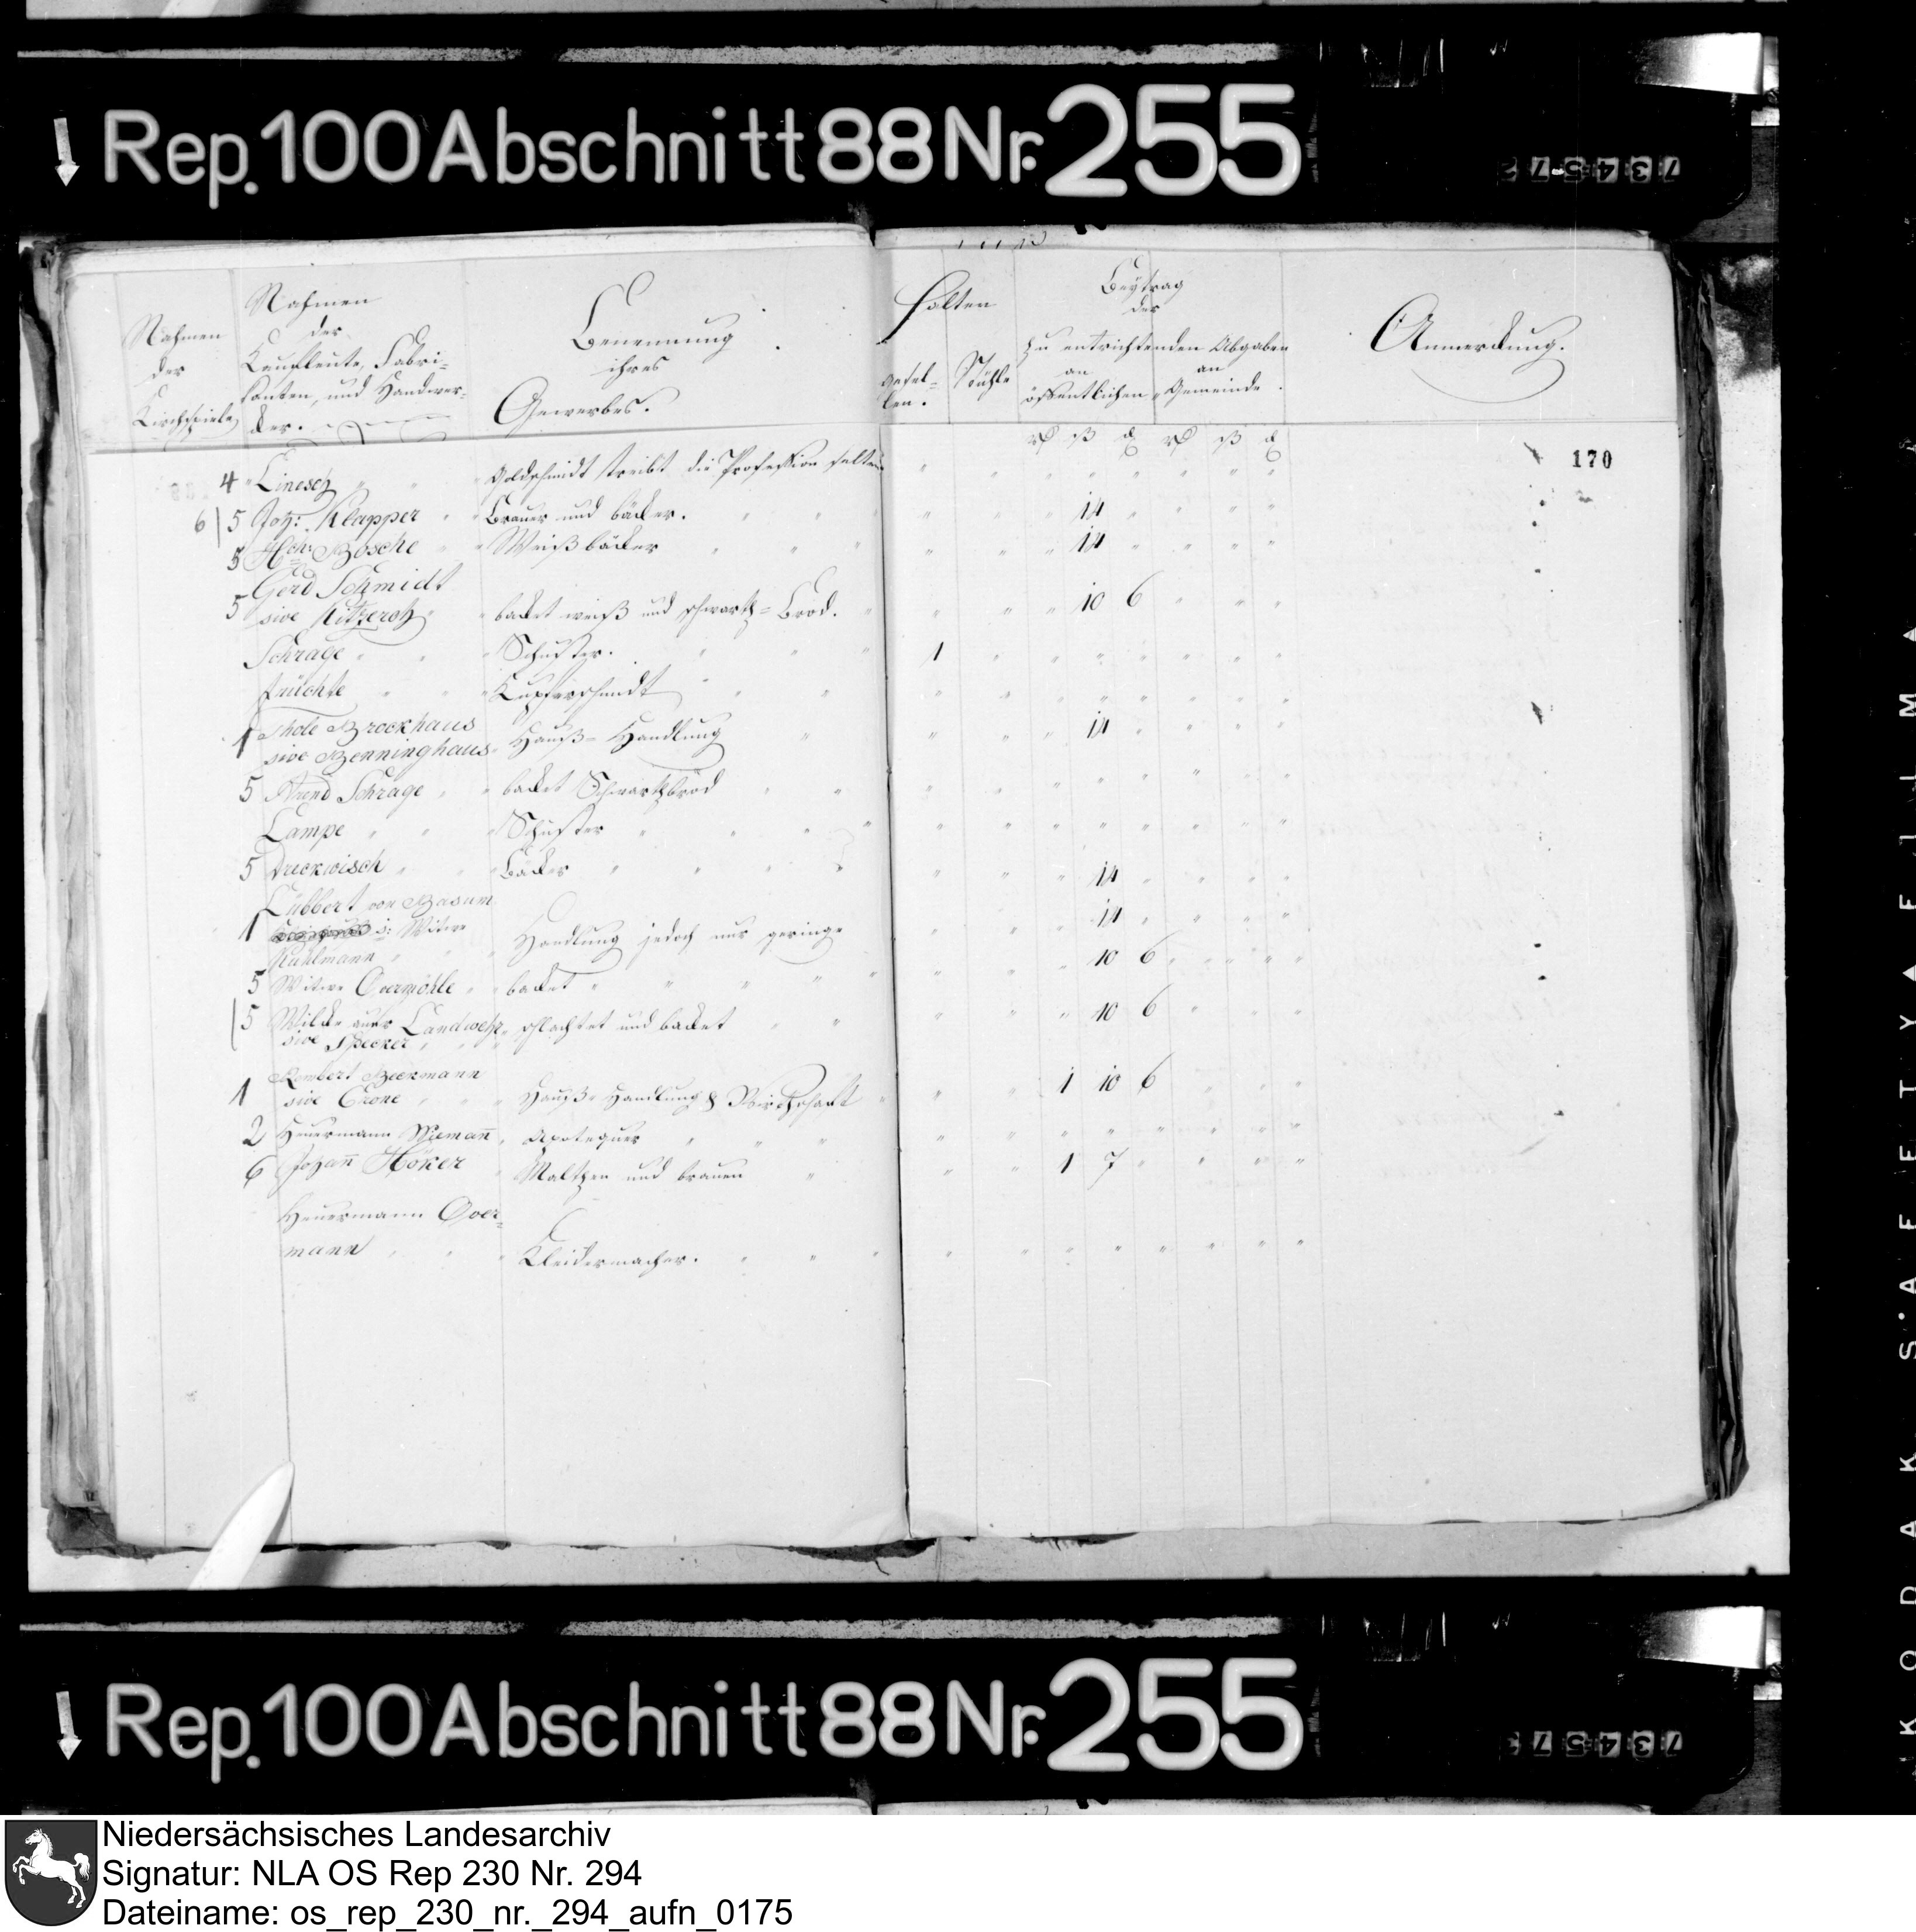 Rep. 100 Abschnitt 88 Nr. 255
Nahmen der Kirchspiele
Nahmen der Kaufleute, Fabri-kanten, und Handwer-cker.
Benennung ihres Gewerbes.
Halten
Gesel-len.
Stühle
Beÿtrag der zu entrichtenden Abgaben
an öffentlichen
an Gemeinde
Anmerckung.
rt ß d rt ß d
170
4 Linesch " " Goldschmidt treibt die Profession selten " " " " " " " "
6 5 Joh: Klapper " Brauer und bäcker. " " " " " 14 " " " "
5 Hch: Bösche " Weiß bäcker " " " " " " 14 " " " "
Gerd Schmidt
5 sive Kitzeroh " backet weiß und schwartz=Brod. " " " " 10 6 " " "
Schrage " " Schuster. " " " 1 " " " " " " "
Früchte " " Kupferschmidt " " " " " " " " " " "
Thole Brockhaus
1 sive Benninghaus Hauß=Handlung " " " " 14 " " " "
5 Arend Schrage " backet Schwartzbrod " " " " " " " " " "
Lampe " " Schuster " " " " " " " " " " " "
5 Dreckwisch " " Bäcker " " " " " " 14 " " " "
Lübbert von Basum
1 s: Witwe
Kuhlmann " " Handlung jedoch nur geringe " " " 14 " " " "
5 Witwe Overmöhle " backet " " " " " " 10 6 " " "
5 Wilcke aufr Landwehr schlachtet und backet " " " " " 10 6 " " "
sive Specker " "
Rembert Beckmann
1 sive Crone " " Hauß=Handlung & Wirthschaft " " " 1 10 6 " " "
2 Heuermann Wieman̄ " Apotequer " " " " " " " " " " "
6 Johan̄ Höker " Maltzen und brauen " " " 1 7 " " " "
Heuermann Over=
mann " " Kleidermacher. " " " " " " " " " " "
Rep. 100 Abschnitt 88 Nr. 255
KODAK SAFETY FILM
Niedersächsisches Landesarchiv
Signatur: NLA OS Rep 230 Nr. 294
Dateiname: os_rep_230_nr._294_aufn_0175